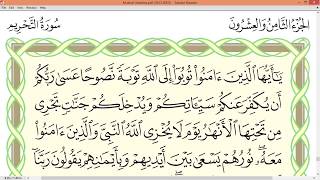 الجزء الثامن والعشرون
سورة التحريم
يَٰٓأَيُّهَا ٱلَّذِينَ ءَامَنُوا۟ تُوبُوٓا۟ إِلَى ٱللَّهِ تَوْبَةً نَّصُوحًا عَسَىٰ رَبُّكُمْ
أَن يُكَفِّرَ عَنكُمْ سَيِّـَٔاتِكُمْ وَيُدْخِلَكُمْ جَنَّٰتٍ تَجْرِى
مِن تَحْتِهَا ٱلْأَنْهَٰرُ يَوْمَ لَا يُخْزِى ٱللَّهُ ٱلنَّبِىَّ وَٱلَّذِينَ ءَامَنُوا۟
مَعَهُۥ نُورُهُمْ يَسْعَىٰ بَيْنَ أَيْدِيهِمْ وَبِأَيْمَٰنِهِمْ يَقُولُونَ رَبَّنَآ